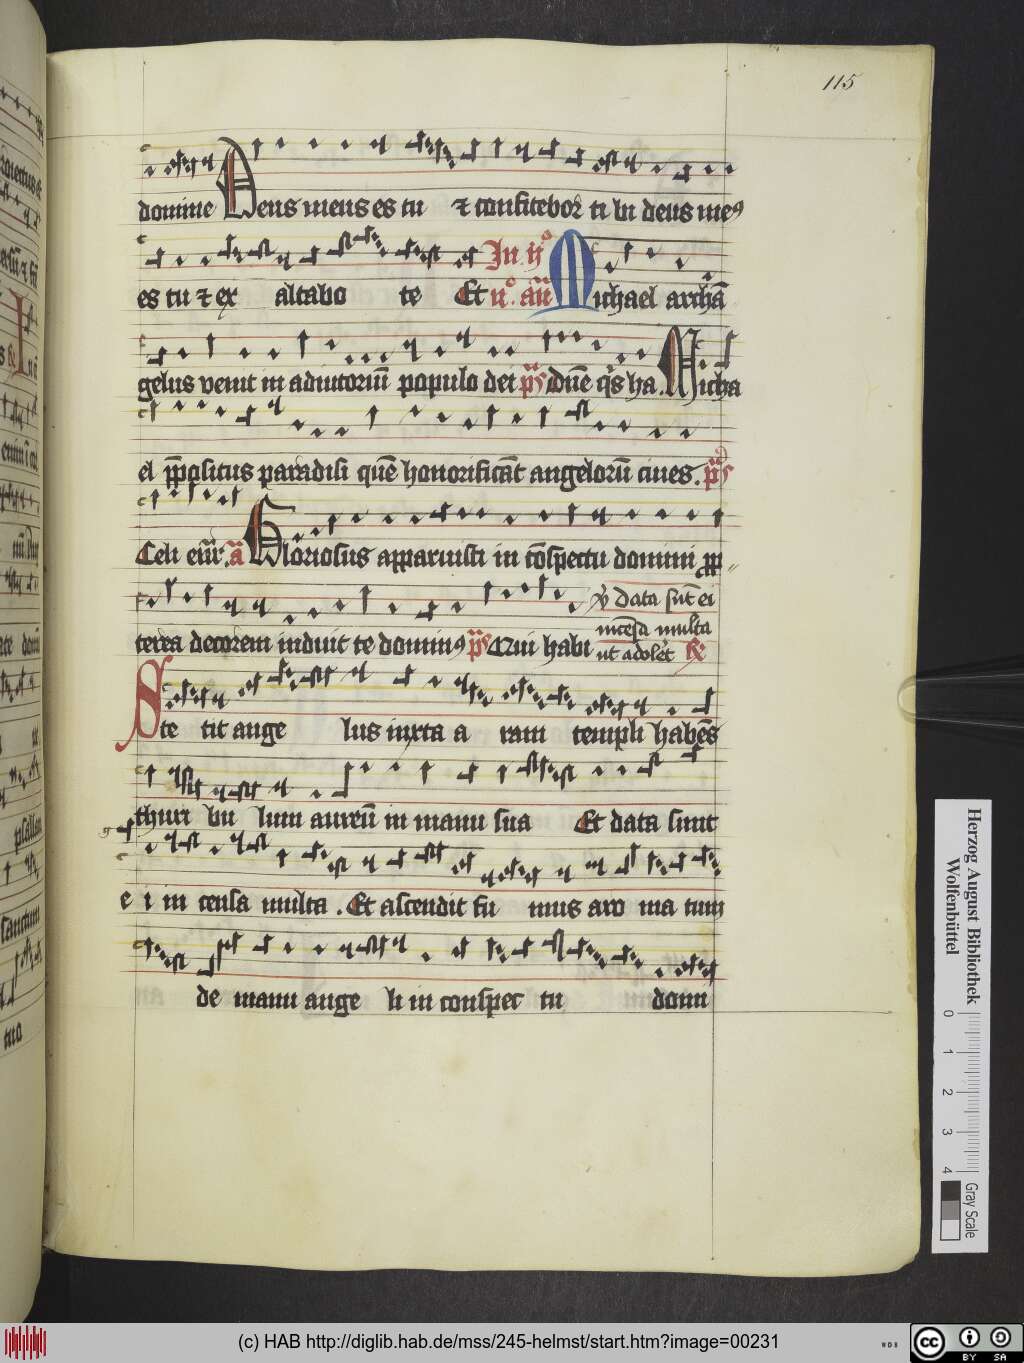 115
domine Deus meus es tu ⁊ confitebor ti bi deus me⁹
es tu ⁊ ex altabo te Et In ij° u°. añ Michael archā
gelus venit in adiutoriū populo dei p̄s dn̄e q̄s ha. Micha
el p̄positus paradisi quē honorificāt angelorū ciues. p̄s
Celi eiū a Gloriosus apparuisti in cōspectu domini pp
terea decorem induit te domin⁹ p̄s Qui habi
℣ data sūt ei
incēsa multa
ut adolēt ℞
Ste tit ange lus iuxta a ram templi habēs
thuri bu lum aureū in manu sua Et data sunt
e i in censa multa. Et ascendit fu mus aro ma tum
de manu ange li in conspec tu domi
Herzog August Bibliothek
Wolfenbüttel
0 1 2 3 4
Gray Scale
(c) HAB http://diglib.hab.de/mss/245-helmst/start.htm?image=00231
WDB
cc BY SA